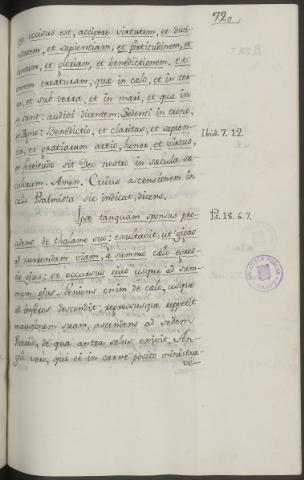 720.
occisus est, accipere virtutem, et divi-
nitatem, et sapientiam, et fortitudinem, et
honorem, et gloriam, et benedictionem. Et
omnem creaturam, quæ in cælo, et in ter-
ra, et sub terra, et in mari, et quæ in
eo sunt: audivi dicentem: Sedenti in trono,
et Agno: Benedictio, et claritas, et sapien-
tia, et gratiarum actio, honor, et virtus,
et fortitudo sit Deo nostro in secula se-
culorum. Amen. Cuius ascensionem in
Psalmista sic indicat, dicens.
Ibid. 7. 12.
Ipse tanquam sponsus pro-
cedens de thalamo suo: exultavit, ut gigas
ad currendam viam, a summo cælo egres-
sio ejus: et occursus ejus usque ad sum-
mum ejus. Veniens enim de cælo, usque
ad inferos descendit: repetit
mansionem suam, ascendens ad sedem
Patris, de qua antea solus exivit. An-
geli vero, qui et in carne posito ministra-
ve-
Ps. 18. 6. 7.